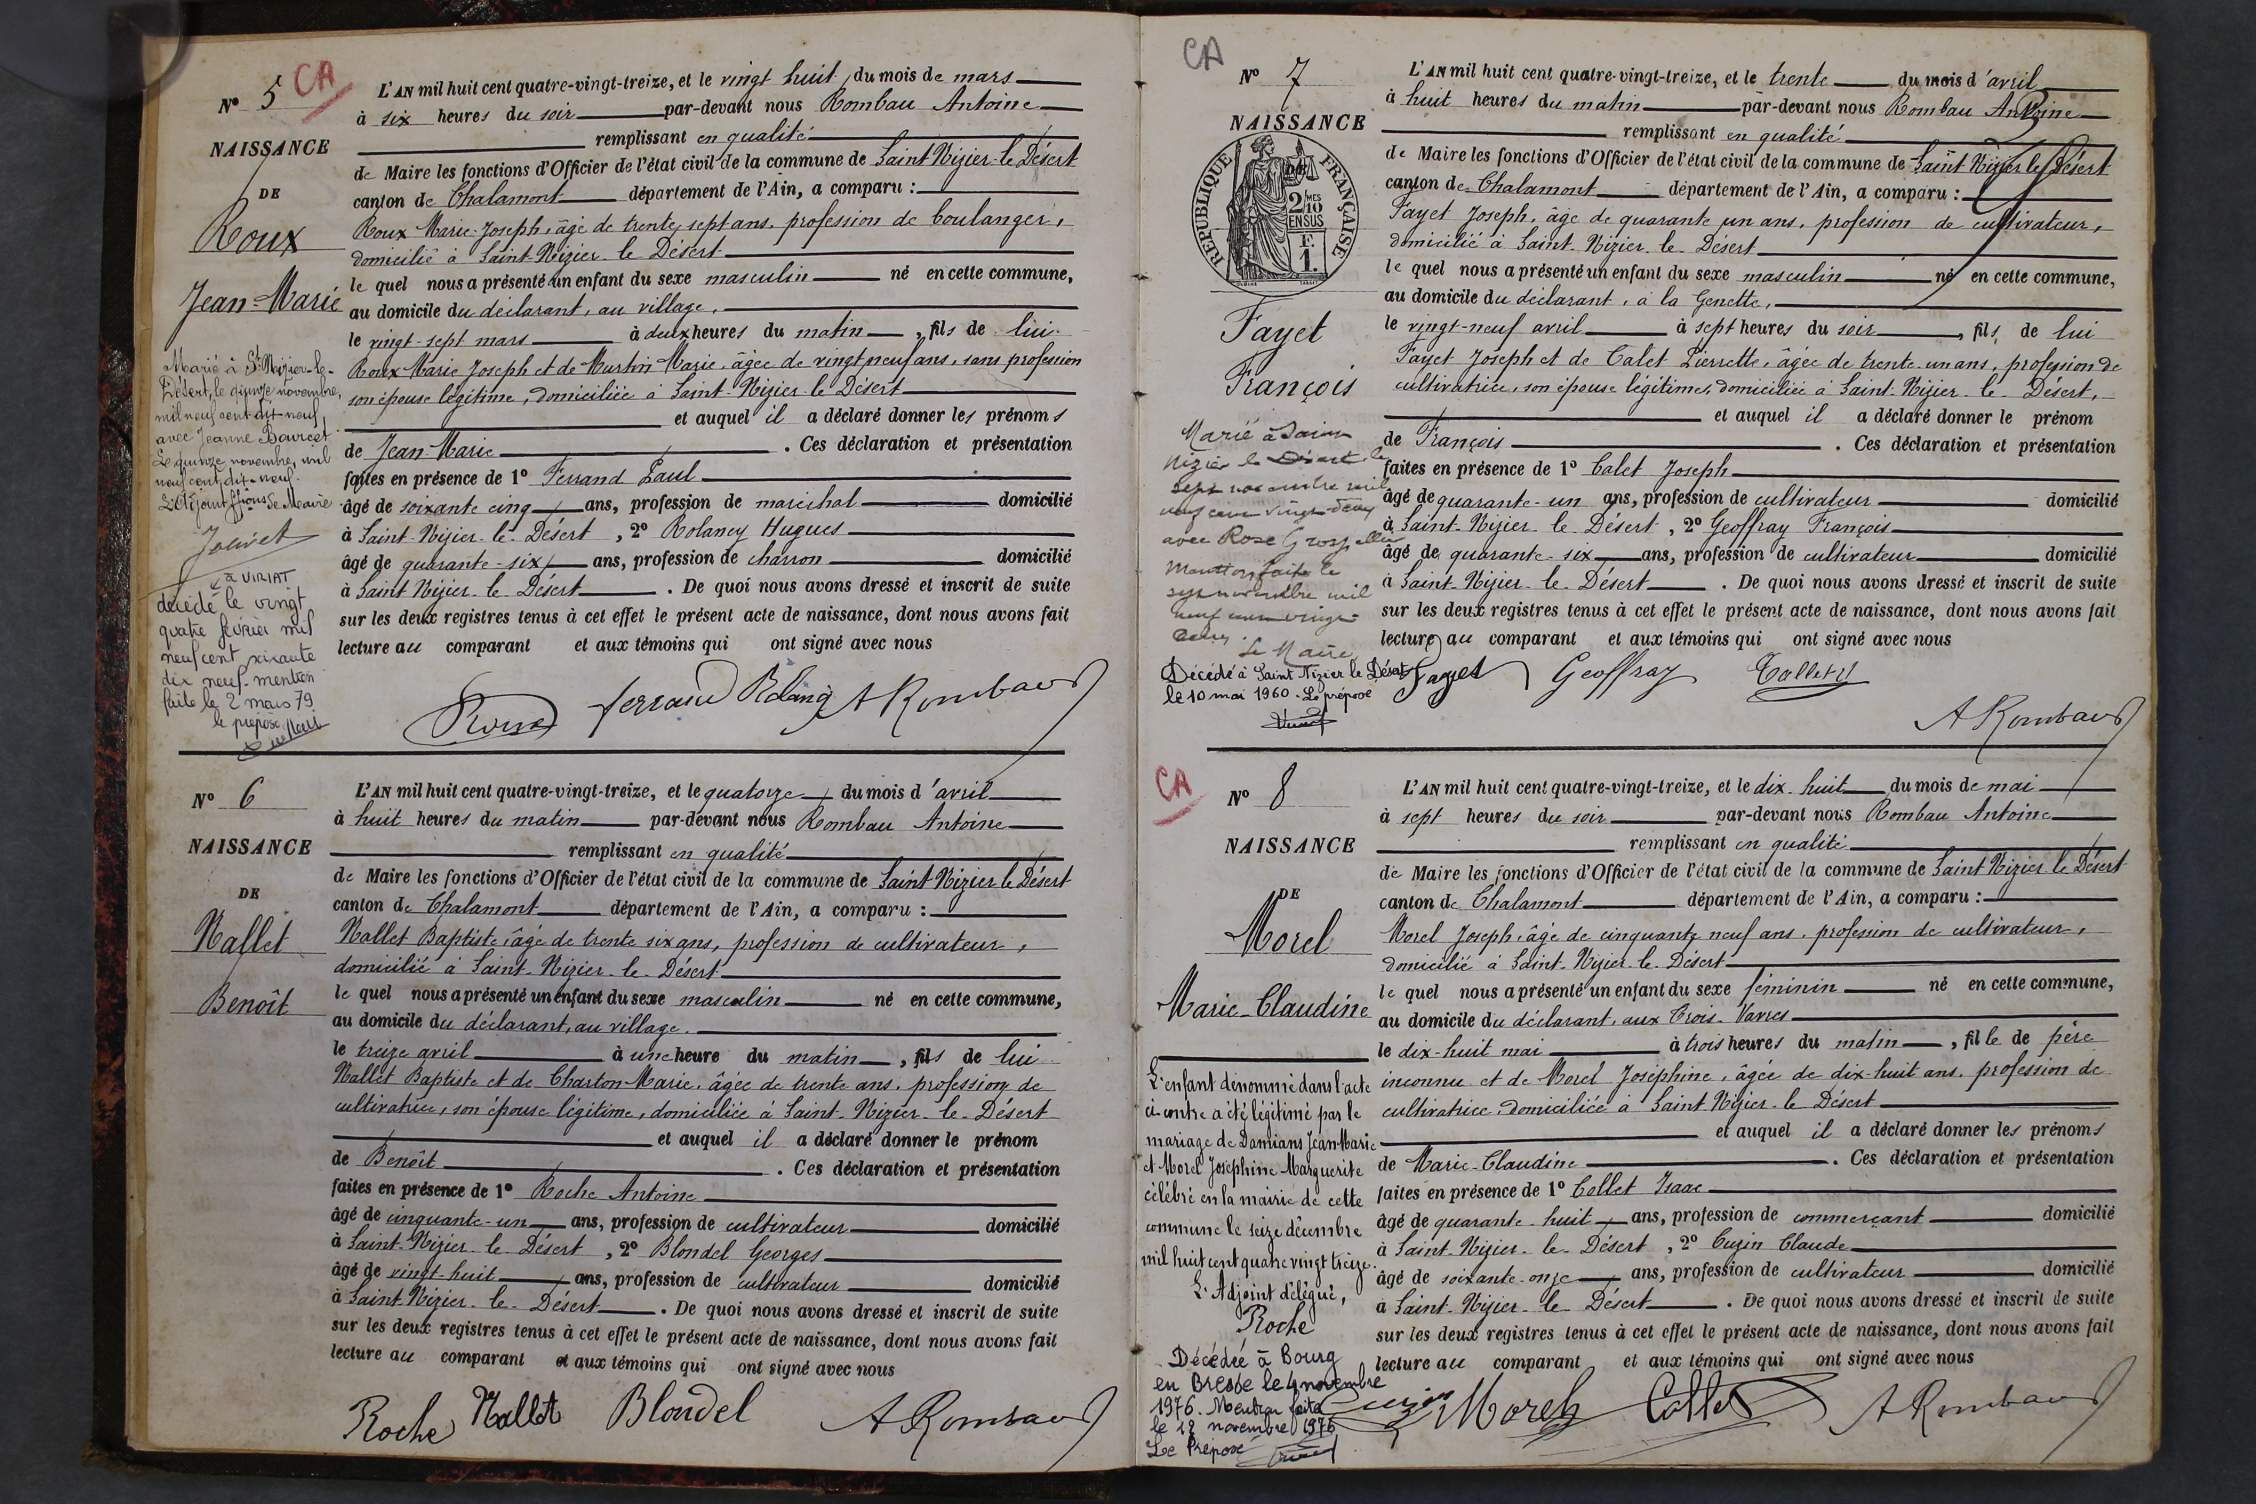 CA
Nº 5
NAISSANCE
DE
Roux
Jean-Marie
Marié à St Nizier-le-
Désert, le quinze novembre,
mil neuf cent dix-neuf,
avec Jeanne Bourcet
Le quinze novembre, mil
neuf cent dix-neuf.
L'Adjoint ffions de Maire
Jolivet
à VIRIAT
décédé le vingt
quatre février mil
neuf cent soixante
dix neuf. mention
faite le 2 mars 79
le préposé
L'AN mil huit cent quatre-vingt-treize, et le vingt huit du mois de mars
à six heures du soir par-devant nous Rombau Antoine
remplissant en qualité
de Maire les fonctions d'Officier de l'état civil de la commune de Saint Nizier le Désert
canton de Chalamont département de l'Ain, a comparu :
Roux Marie-Joseph, âgé de trente sept ans, profession de boulanger,
domicilié à Saint-Nizier-le-Désert
le quel nous a présenté un enfant du sexe masculin né en cette commune,
au domicile du déclarant, au village,
le vingt-sept mars à deux heures du matin, fils de lui
Roux Marie Joseph et de Murtin Marie, âgée de vingt neuf ans, sans profession
son épouse légitime, domiciliée à Saint-Nizier-le-Désert
et auquel il a déclaré donner les prénoms
de Jean-Marie. Ces déclaration et présentation
faites en présence de 1º Ferrand Paul
âgé de soixante cinq ans, profession de maréchal domicilié
à Saint-Nizier-le-Désert, 2º Rolancy Hugues
âgé de quarante-six ans, profession de charron domicilié
à Saint-Nizier-le-Désert. De quoi nous avons dressé et inscrit de suite
sur les deux registres tenus à cet effet le présent acte de naissance, dont nous avons fait
lecture au comparant et aux témoins qui ont signé avec nous
Roux Ferrand A Rombau
Nº 6
NAISSANCE
DE
Nallet
Benoît
L'AN mil huit cent quatre-vingt-treize, et le quatorze du mois d'avril
à huit heures du matin par-devant nous Rombau Antoine
remplissant en qualité
de Maire les fonctions d'Officier de l'état civil de la commune de Saint Nizier le Désert
canton de Chalamont département de l'Ain, a comparu :
Nallet Baptiste, âgé de trente six ans, profession de cultivateur,
domicilié à Saint-Nizier-le-Désert
le quel nous a présenté un enfant du sexe masculin né en cette commune,
au domicile du déclarant, au village.
le treize avril à une heure du matin, fils de lui
Nallet Baptiste et de Charton Marie, âgée de trente ans, profession de
cultivatrice, son épouse légitime, domiciliée à Saint-Nizier-le-Désert
et auquel il a déclaré donner le prénom
de Benoît. Ces déclaration et présentation
faites en présence de 1º Roche Antoine
âgé de cinquante-un ans, profession de cultivateur domicilié
à Saint-Nizier-le-Désert, 2º Blondel Georges
âgé de vingt-huit ans, profession de cultivateur domicilié
à Saint-Nizier-le-Désert. De quoi nous avons dressé et inscrit de suite
sur les deux registres tenus à cet effet le présent acte de naissance, dont nous avons fait
lecture au comparant et aux témoins qui ont signé avec nous
Roche Nallet Blondel A Rombau
CA
Nº 7
NAISSANCE
RÉPUBLIQUE FRANÇAISE
DE
2/10 MES
ENSUS
F.
1.
Fayet
François
Marié à Saint
Nizier le Désert le
sept novembre mil
neuf cent vingt-deux
avec Rose
Mention faite le
sept novembre mil
neuf cent vingt
deux.
Le Maire
Décédé à Saint Nizier le Désert
le 10 mai 1960. Le préposé
L'AN mil huit cent quatre-vingt-treize, et le trente du mois d'avril
à huit heures du matin par-devant nous Rombau Antoine
remplissant en qualité
de Maire les fonctions d'Officier de l'état civil de la commune de Saint Nizier le Désert
canton de Chalamont département de l'Ain, a comparu :
Fayet Joseph, âgé de quarante un ans, profession de cultivateur,
domicilié à Saint-Nizier-le-Désert
le quel nous a présenté un enfant du sexe masculin né en cette commune,
au domicile du déclarant, à la Genette,
le vingt-neuf avril à sept heures du soir, fils de lui
Fayet Joseph et de Calet Pierrette, âgée de trente-un ans, profession de
cultivatrice, son épouse légitime, domiciliée à Saint-Nizier-le-Désert,
et auquel il a déclaré donner le prénom
de François. Ces déclaration et présentation
faites en présence de 1º Calet Joseph
âgé de quarante-un ans, profession de cultivateur domicilié
à Saint-Nizier-le-Désert, 2º Geoffray François
âgé de quarante-six ans, profession de cultivateur domicilié
à Saint-Nizier-le-Désert. De quoi nous avons dressé et inscrit de suite
sur les deux registres tenus à cet effet le présent acte de naissance, dont nous avons fait
lecture au comparant et aux témoins qui ont signé avec nous
Fayet Geoffray
A Rombau
CA
Nº 8
NAISSANCE
DE
Morel
Marie-Claudine
L'enfant dénommé dans l'acte
ci-contre a été légitimé par le
mariage de Damians Jean-Marie
et Morel Joséphine Marguerite
célébré en la mairie de cette
commune le seize décembre
mil huit cent quatre vingt treize.
L'Adjoint délégué,
Roche
Décédée à Bourg
en Bresse le 4 novembre
1976. Mention faite
le 12 novembre 1976
Le Préposé
L'AN mil huit cent quatre-vingt-treize, et le dix-huit du mois de mai
à sept heures du soir par-devant nous Rombau Antoine
remplissant en qualité
de Maire les fonctions d'Officier de l'état civil de la commune de Saint Nizier le Désert
canton de Chalamont département de l'Ain, a comparu :
Morel Joseph, âgé de cinquante neuf ans, profession de cultivateur,
domicilié à Saint-Nizier-le-Désert
le quel nous a présenté un enfant du sexe féminin né en cette commune,
au domicile du déclarant, aux Trois-Vavres
le dix-huit mai à trois heures du matin, fille de père
inconnu et de Morel Joséphine, âgée de dix-huit ans, profession de
cultivatrice, domiciliée à Saint Nizier-le-Désert
et auquel il a déclaré donner les prénoms
de Marie-Claudine. Ces déclaration et présentation
faites en présence de 1º Collet Isaac
âgé de quarante-huit ans, profession de commerçant domicilié
à Saint-Nizier-le-Désert, 2º Cuzin Claude
âgé de soixante-onze ans, profession de cultivateur domicilié
à Saint-Nizier-le-Désert. De quoi nous avons dressé et inscrit de suite
sur les deux registres tenus à cet effet le présent acte de naissance, dont nous avons fait
lecture au comparant et aux témoins qui ont signé avec nous
Cuzin Morel Collet A Rombau